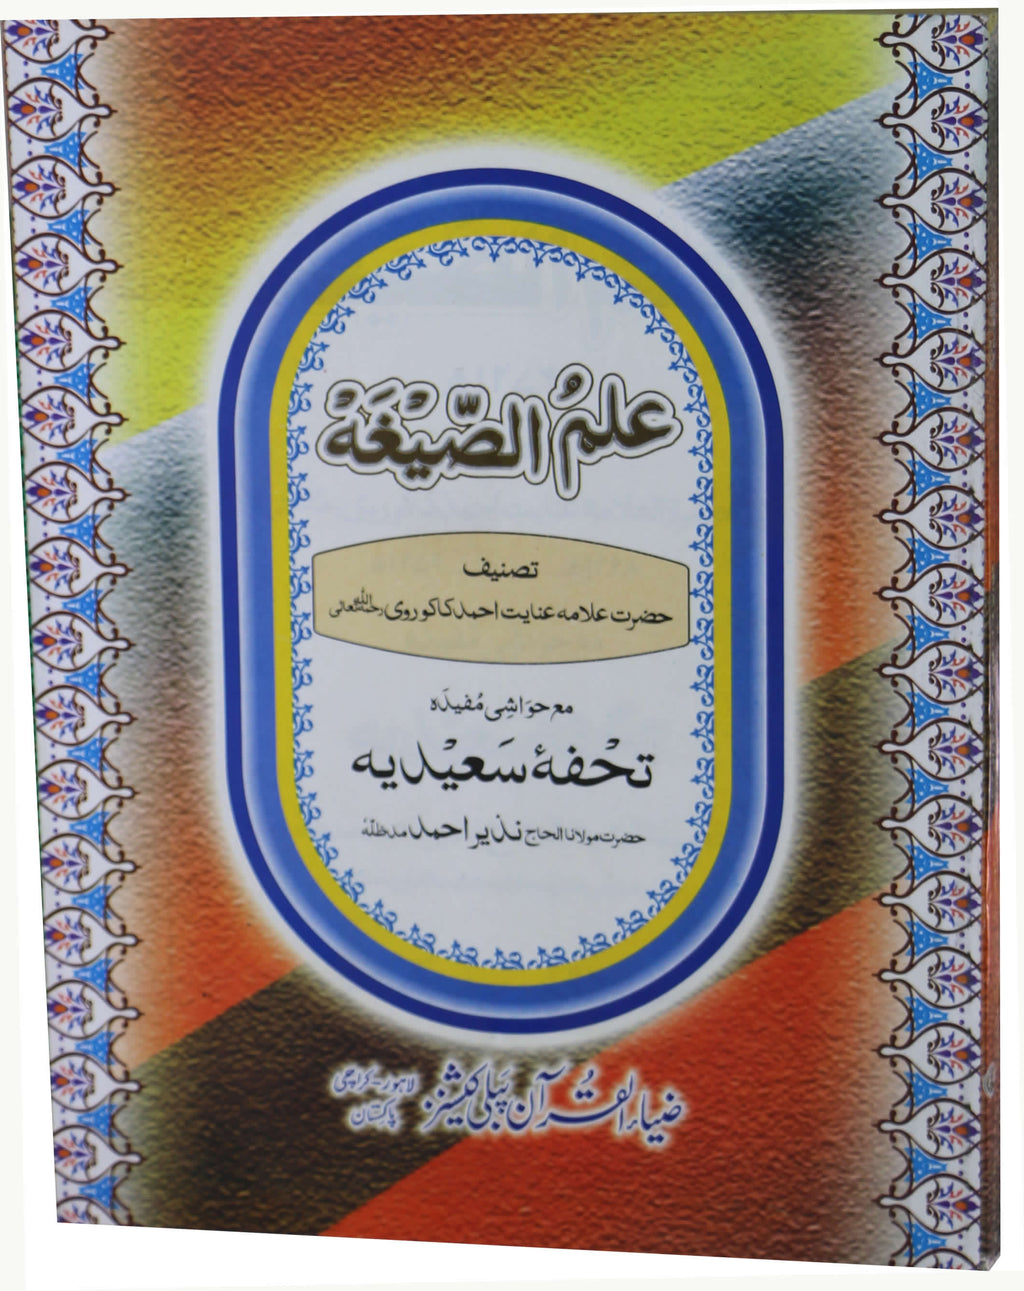 علمُ الصِّیْغَهْ
تصنیف
حضرت علامہ عنایت احمد کاکوروی رحمۃ اللہ تعالی
مع حوَاشِی مُفیدَہ
تحْفۂ سَعیْدیہ
حضرت مولانا الحاج نذیر احمد مدظلّہٗ
ضیاء القُرآن پبلی کیشنز
لاہور - کراچی
پاکستان